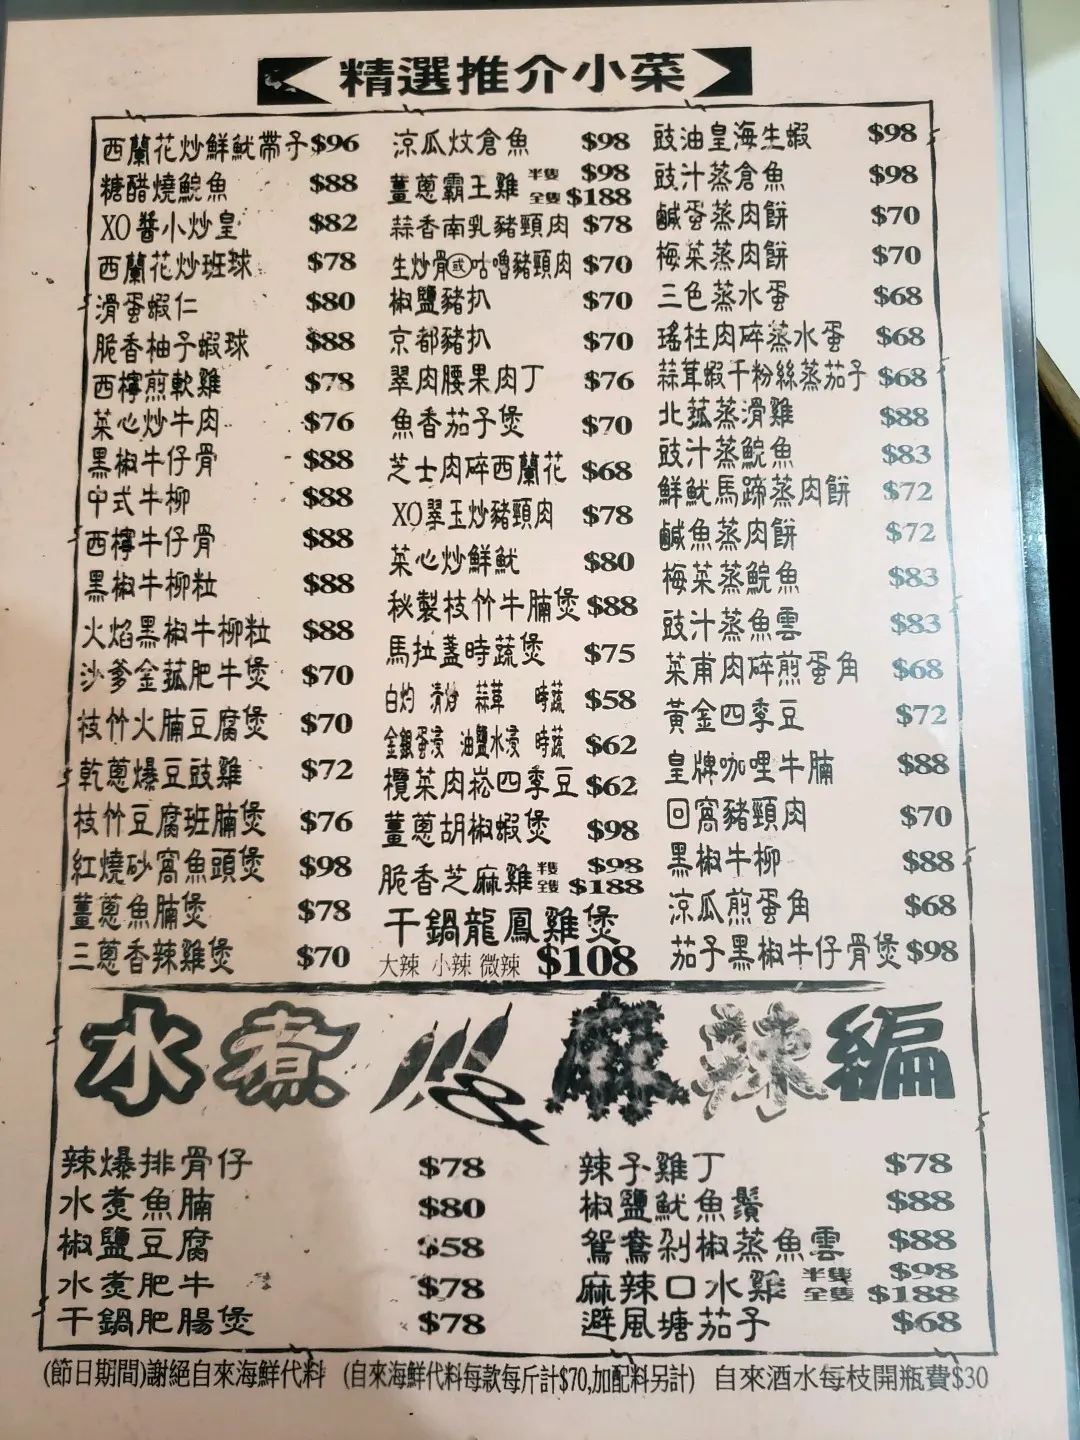 精選推介小菜
西蘭花炒鮮魷帶子 $96
糖醋燒鯇魚 $88
XO醬小炒皇 $82
西蘭花炒班球 $78
滑蛋蝦仁 $80
脆香柚子蝦球 $88
西檸煎軟雞 $78
菜心炒牛肉 $76
黑椒牛仔骨 $88
中式牛柳 $88
西檸牛仔骨 $88
黑椒牛柳粒 $88
火焰黑椒牛柳粒 $88
沙爹金菰肥牛煲 $70
枝竹火腩豆腐煲 $70
乾蔥爆豆豉雞 $72
枝竹豆腐班腩煲 $76
紅燒砂窩魚頭煲 $98
薑蔥魚腩煲 $78
三蔥香辣雞煲 $70
涼瓜炆倉魚 $98
薑蔥霸王雞 半隻 $98 全隻 $188
蒜香南乳豬頸肉 $78
生炒骨或咕嚕豬頸肉 $70
椒鹽豬扒 $70
京都豬扒 $70
翠肉腰果肉丁 $76
魚香茄子煲 $70
芝士肉碎西蘭花 $68
XO翠玉炒豬頸肉 $78
菜心炒鮮魷 $80
秘製枝竹牛腩煲 $88
馬拉盞時蔬煲 $75
白灼 清炒 蒜茸 時蔬 $58
金銀蛋浸 油鹽水浸 時蔬 $62
欖菜肉崧四季豆 $62
薑蔥胡椒蝦煲 $98
脆香芝麻雞 半隻 $98 全隻 $188
干鍋龍鳳雞煲
大辣 小辣 微辣 $108
豉油皇海生蝦 $98
豉汁蒸倉魚 $98
鹹蛋蒸肉餅 $70
梅菜蒸肉餅 $70
三色蒸水蛋 $68
瑤柱肉碎蒸水蛋 $68
蒜茸蝦干粉絲蒸茄子 $68
北菰蒸滑雞 $88
豉汁蒸鯇魚 $83
鮮魷馬蹄蒸肉餅 $72
鹹魚蒸肉餅 $72
梅菜蒸鯇魚 $83
豉汁蒸魚雲 $83
菜甫肉碎煎蛋角 $68
黃金四季豆 $72
皇牌咖哩牛腩 $88
回窩豬頸肉 $70
黑椒牛柳 $88
涼瓜煎蛋角 $68
茄子黑椒牛仔骨煲 $98
水煮 麻辣編
辣爆排骨仔 $78
水煮魚腩 $80
椒鹽豆腐 $58
水煮肥牛 $78
干鍋肥腸煲 $78
辣子雞丁 $78
椒鹽魷魚鬚 $88
鴛鴦剁椒蒸魚雲 $88
麻辣口水雞 半隻 $98 全隻 $188
避風塘茄子 $68
(節日期間)謝絕自來海鮮代料 (自來海鮮代料每款每斤計$70,加配料另計) 自來酒水每枝開瓶費$30